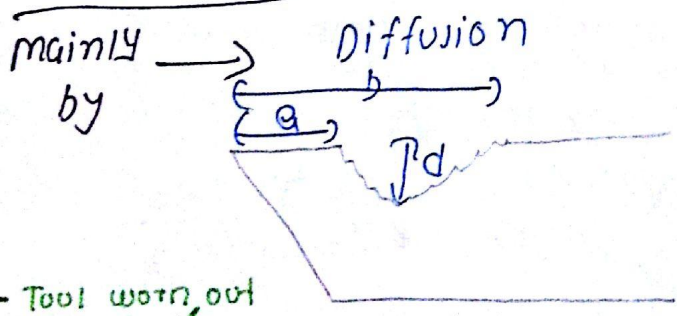 mainly → Diffusion
by
b
a
d
- Tool worn out